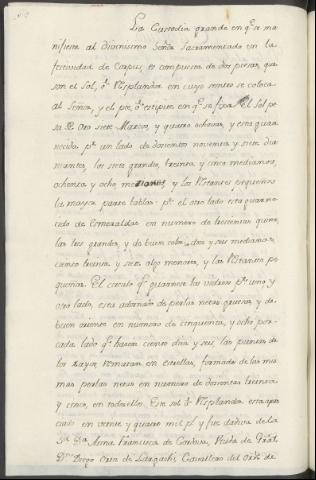 La Custodia grande en q.e se ma
nifiesta al Divinisimo Señor Sacramentado en la
festividad de Corpus, es compuesta de dos piezas, que
son el Sol, ó Resplandor en cuyo centro se coloca
al Señor, y el pie, ó estipite en q.e se fixa. El Sol pe
sa de Oro siete Marcos, y quatro ochavas, y está guar
necido p.r un lado de doscientos noventa y siete dia
mantes, los siete grandes, treinta y cinco medianos,
ochenta y ocho menores, y los restantes pequeños
la mayor parte tablas: p.r el otro lado está guarne
cido de Esmeraldas en numero de trescientas quince,
las tres grandes, y de buen color, dos y seis medianas,
ciento treinta y siete algo menores, y las restantes pe
queñas. El circulo q.e guarnece las vidrieras p.r uno, y
otro lado, esta adornado de perlas netas, gruesas, y de
buen oriente en numero de cinquenta, y ocho por
cada lado q.e hacen ciento diez y seis, las puntas de
los rayos rematan en estrellas, formadas de las mis
mas perlas netas en numero de doscientas treinta
y cinco, en todas ellas. Este sol ó Resplandor está apre
ciado en veinte y quatro mil p.s y fue dadiva de la
S.ra D.a Anna Francisca de Cordova, Viuda de Gral.
D.n Diego Orta de Caballero del Orñ. de